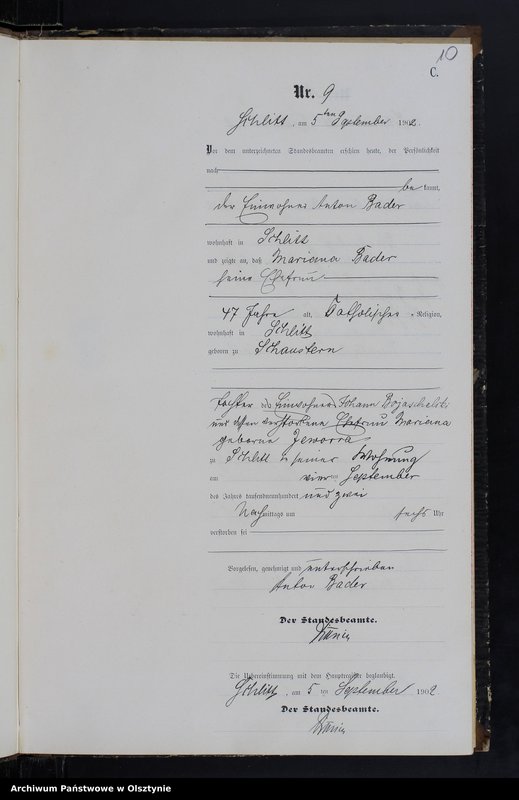 10
C.
Nr. 9
Schlitt, am 5ten September 1902.
Vor dem unterzeichneten Standesbeamten erschien heute, der Persönlichkeit
nach
be kannt,
der Einwohner Anton Bader
wohnhaft in Schlitt
und zeigte an, daß Mariana Bader
seine Ehefrau
47 Jahre alt, katholischer Religion,
wohnhaft in Schlitt
geboren zu Schaustern
Tochter des Einwohners Johann
und dessen verstorbene Ehefrau Mariana
geborne Jeworra
zu Schlitt in seiner Wohnung
am vierten September
des Jahres tausendneunhundert und zwei
Nachmittags um sechs Uhr
verstorben sei
Vorgelesen, genehmigt und unterschrieben
Anton Bader
Der Standesbeamte.
Die Uebereinstimmung mit dem Hauptregister beglaubigt.
Schlitt, am 5 ten September 1902
Der Standesbeamte.
Archiwum Państwowe w Olsztynie